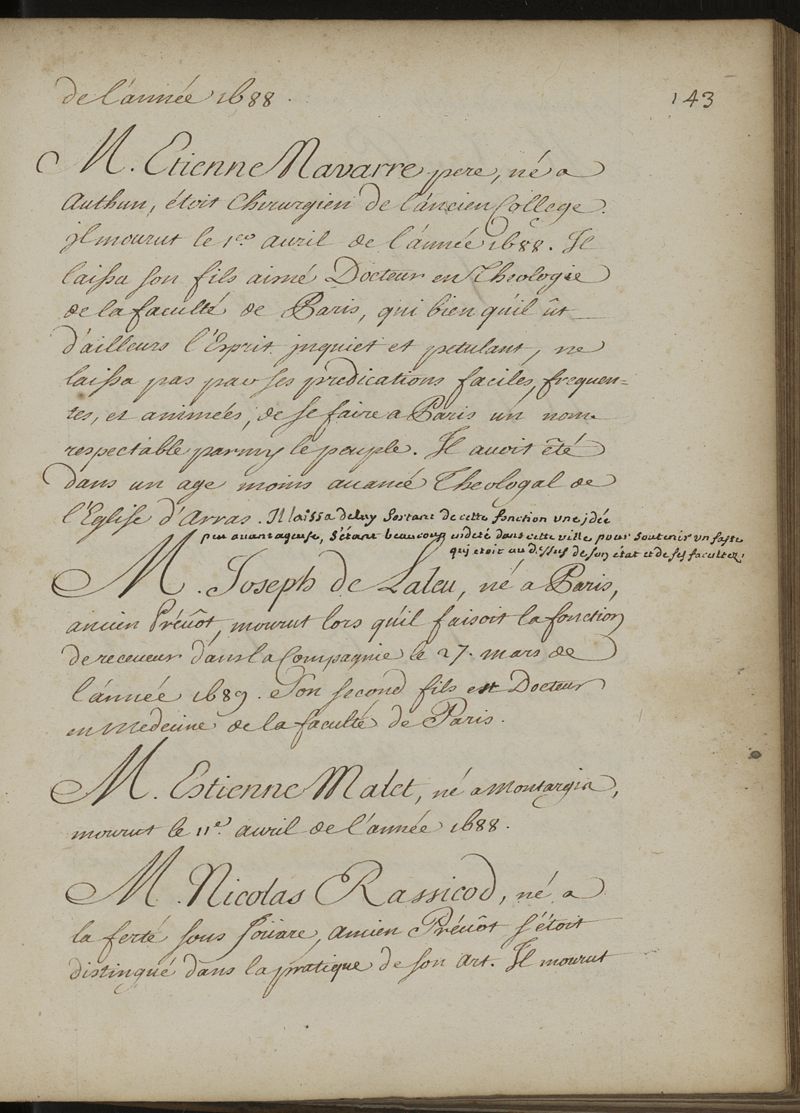 de l'année 1688.
143
M. Etienne Navarre pere, né a
Authun, étoit Chirurgien de l'ancien College.
il mourut le 1.er avril de l'année 1688. Il
laissa son fils aimé Docteur en Theologie
de la faculté de Paris, qui bien qu'il ût
d'ailleurs l'Esprit inquiet et petulant, ne
laissa pas par ses predications faciles, frequen=
tes, et animées, de se faire a Paris un nom
respectable parmy le peuple. Il avoit été
dans un age moins avancé Theologal de
l'Eglise d'Arras. Il laissa de luy sortant de cette fonction une idée
peu avantageuse, s'étant beaucoup endeté dans cette ville pour soutenir un faste
qui etoit au dessus de son état et de ses facultez.
M. Joseph de Laleu, né a Paris,
ancien Prévôt, mourut lors qu'il faisoit la fonction
de receveur dans la Compagnie le 27. mars de
l'année 1689. Son second fils est Docteur
en Medecine de la faculté de Paris.
M. Estienne Malet, né a Montargis,
mourut le 11.e avril de l'année 1688.
M. Nicolas Rassicod, né a
la ferté sous Joüare, ancien Prévôt s'étoit
distingué dans la pratique de son Art. Il mourut